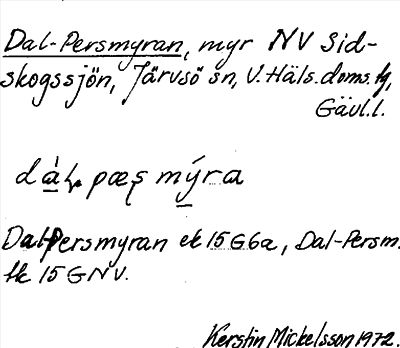 Dal-Persmyran, myr NV Sid-
skogssjön, Järvsö sn, V. Häls. doms. tg,
Gävl. l.
dàl pæș mýra
Dal-Persmyran ek 15 G 6a, Dal-Persm.
tk 15 G NV.
Kerstin Mickelsson 1972.